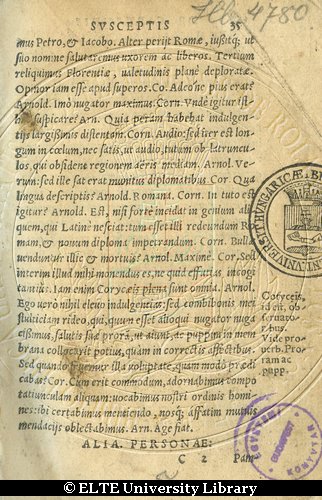 Ills 4780
SVSCEPTIS 35
mus Petro, & Iacobo. Alter perijt Romæ, iussitq; ut
suo nomine salutaremus uxorem ac liberos. Tertium
reliquimus Florentiæ, ualetudinis planè deploratæ.
Opinor iam esse apud superos. Co. Adeone pius erat?
Arnold. Imò nugator maximus. Corn. Vnde igitur ist
hæc suspicare? Ar. Quia peram habebat indulgen-
tijs largissimis distentam. Corn. Audio: sed iter est lon-
gum in cœlum, nec satis, ut audio, tutum ob latruncu-
los, qui obsident regionem aëris mediam. Arnol. Ve-
rum: sed ille sat erat munitus diplomatibus Cor. Qua
lingua descriptis? Arnold. Romana. Corn. In tuto est
igitur? Arnold. Est, nisi fortè incidat in genium ali-
quem, qui Latinè nesciat: tum esset illi redeundum Ro
mam, & nouum diploma impetrandum. Corn. Bullæ
uenduntur illic & mortuis? Arnol. Maxime. Cor. Sed
interim illud mihi monendus es, ne quid effutias incogi
tantius. Iam enim Coryceis plena sunt omnia. Arnol.
Ego uerò nihil eleuo indulgentias: sed combibonis mei
stulticiam rideo, qui, quum esset alioqui nugator nuga
cissimus, salutis suæ prorã, ut aiunt, ac puppim in mem
brana collocauit potius, quàm in correctis affectibus.
Sed quando fruemur illa uoluptate, quam modò prædi
cabas? Cor. Cum erit commodum, adornabimus compo
tatiunculam aliquam: uocabimus nostri ordinis homi
nes: ibi certabimus mentiendo, nosq; affatim mutuis
mendacijs oblectabimus. Arn. Age fiat.
Coryceis,
id est, ob-
seruato-
ribus.
Vide pro-
uerb. Pro-
ram ac
pupp.
ALIA. PERSONAE:
C 2 Pam-
BUDAPEST
© ELTE University Library